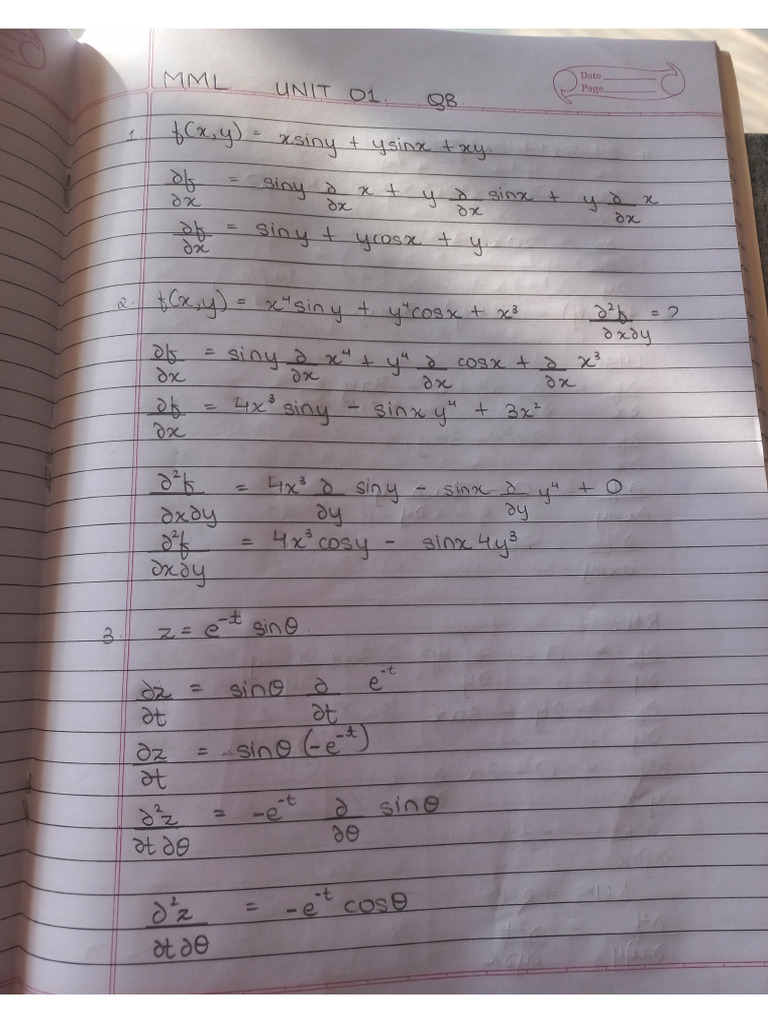 MML UNIT 01. QB
Date
Page
1. f(x,y) = xsiny + ysinx + xy
∂f/∂x = siny ∂/∂x x + y ∂/∂x sinx + y ∂/∂x x
∂f/∂x = siny + ycosx + y
2. f(x,y) = x⁴siny + y⁴cosx + x³ ∂²f/∂x∂y = ?
∂f/∂x = siny ∂/∂x x⁴ + y⁴ ∂/∂x cosx + ∂/∂x x³
∂f/∂x = 4x³ siny - sinx y⁴ + 3x²
∂²f/∂x∂y = 4x³ ∂/∂y siny - sinx ∂/∂y y⁴ + 0
∂²f/∂x∂y = 4x³cosy - sinx 4y³
3. z = e⁻ᵗ sinθ
∂z/∂t = sinθ ∂/∂t e⁻ᵗ
∂z/∂t = sinθ (-e⁻ᵗ)
∂²z/∂t∂θ = -e⁻ᵗ ∂/∂θ sinθ
∂²z/∂t∂θ = -e⁻ᵗ cosθ